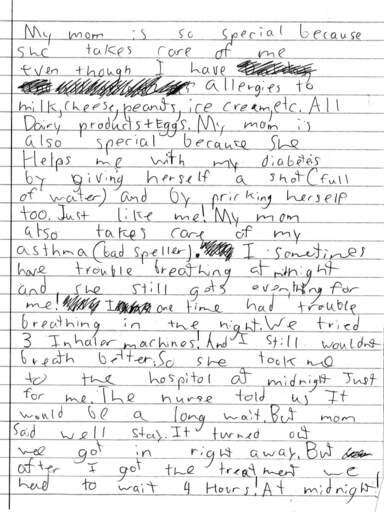 My mom is so special because
she takes care of me
even though I have
allergies to
milk, cheese, peanuts, ice cream, etc. All
Dairy products + Eggs. My mom is
also special because she
Helps me with my diabetes
by giving herself a shot (full
of water) and by pricking herself
too. Just like me! My mom
also takes care of my
asthma (bad speller). I sometimes
have trouble breathing at night
and she still gots everything for
me! I one time had trouble
breathing in the night. We tried
3 Inhaler machines! And I still wouldnt
breath better. So she took me
to the hospital at midnight Just
for me. The nurse told us It
would be a long wait. But mom
said well stay. It turned out
we got in right away. But
after I got the treatment we
had to wait 4 Hours! At midnight!